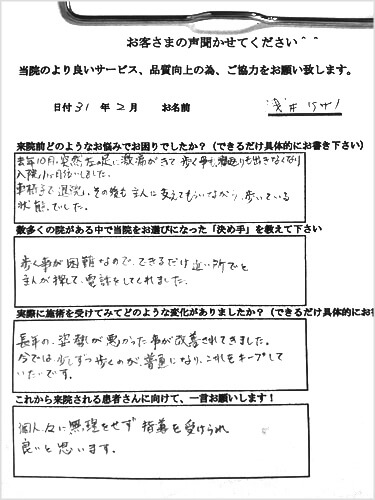 お客さまの声聞かせてください＾＾
当院のより良いサービス、品質向上の為、ご協力をお願い致します。
日付 31 年 2 月 お名前 浅井
来院前どのようなお悩みでお困りでしたか？（できるだけ具体的にお書き下さい）
去年10月、突然左足に激痛がきて歩く事も寝返りも出きなくなり
入院1か月位いしました。
車椅子で退院、その後も主人に支えてもらいながら歩いている
状態でした。
数多くの院がある中で当院をお選びになった「決め手」を教えて下さい
歩く事が困難なので、できるだけ近い所でと
主人が探して、電話をしてくれました。
実際に施術を受けてみてどのような変化がありましたか？（できるだけ具体的にお
長年の、姿勢が悪かった事が改善されてきました。
今では、少しずつ歩くのが、普通になり、これをキープして
いたいです。
これから来院される患者さんに向けて、一言お願いします！
個人個人に無理をせず指導を受けられ
良いと思います。